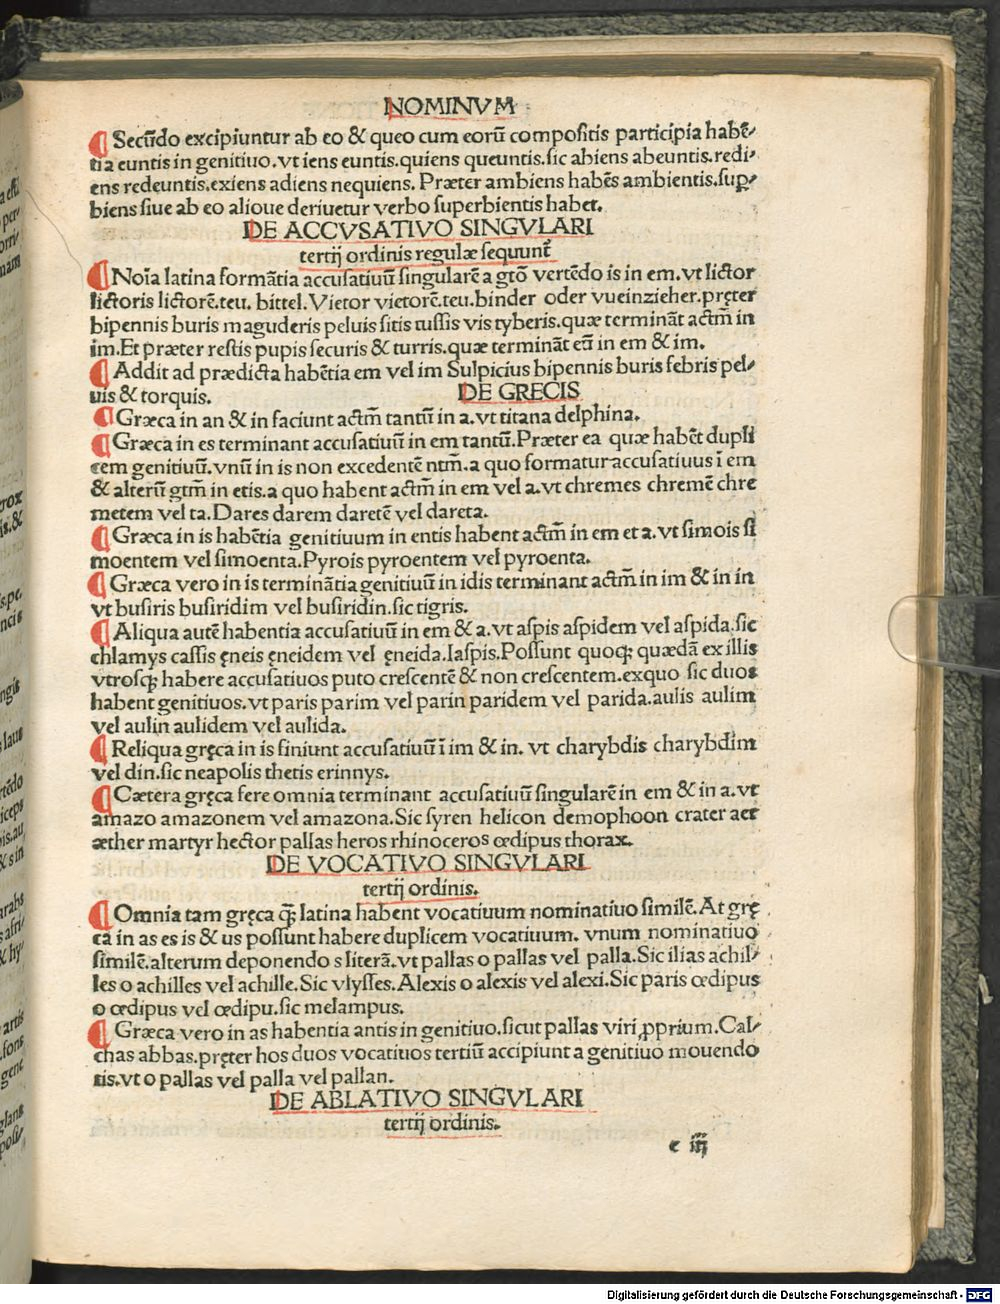 NOMINVM
¶ Secūdo excipiuntur ab eo & queo cum eorū compositis participia habē⸗
tia euntis in genitiuo.vt iens euntis.quiens queuntis.sic abiens abeuntis.redi⸗
ens redeuntis.exiens adiens nequiens. Præter ambiens habēs ambientis.sup⸗
biens siue ab eo alioue deriuetur verbo superbientis habet.
DE ACCVSATIVO SINGVLARI
tertij ordinis regulæ sequunt̃
¶ Noīa latina formātia accusatiuū singularē a gtō vertēdo is in em.vt lictor
lictoris lictorē.teu. bittel. Vietor vietorē.teu.binder oder vueinzieher.pręter
bipennis buris maguderis peluis sitis tussis vis tyberis.quæ termināt actm̄ in
im.Et præter restis pupis securis & turris.quæ termināt eū in em & im.
¶ Addit ad prædicta habētia em vel im Sulpicius bipennis buris febris pel⸗
uis & torquis. DE GRECIS
¶ Græca in an & in faciunt actm̄ tantū in a.vt titana delphina.
¶ Græca in es terminant accusatiuū in em tantū.Præter ea quæ habēt dupli
cem genitiuū.vnū in is non excedentē ntm̄.a quo formatur accusatiuus ī em
& alterū gtm̄ in etis.a quo habent actm̄ in em vel a.vt chremes chremē chre
metem vel ta.Dares darem daretē vel dareta.
¶ Græca in is habētia genitiuum in entis habent actm̄ in em et a.vt simois si
moentem vel simoenta.Pyrois pyroentem vel pyroenta.
¶ Græca vero in is terminātia genitiuū in idis terminant actm̄ in im & in in
vt busiris busiridim vel busiridin.sic tigris.
¶ Aliqua autē habentia accusatiuū in em & a.vt aspis aspidem vel aspida.sic
chlamys cassis ęneis ęneidem vel ęneida.Iaspis.Possunt quoqȝ quædā ex illis
vtrosqȝ habere accusatiuos puto crescentē & non crescentem.exquo sic duos
habent genitiuos.vt paris parim vel parin paridem vel parida.aulis aulim
vel aulin aulidem vel aulida.
¶ Reliqua gręca in is finiunt accusatiuū ī im & in. vt charybdis charybdim
vel din.sic neapolis thetis erinnys.
¶ Cætera gręca fere omnia terminant accusatiuū singularē in em & in a.vt
amazo amazonem vel amazona.Sic syren helicon demophoon crater aer
æther martyr hector pallas heros rhinoceros œdipus thorax.
DE VOCATIVO SINGVLARI
tertij ordinis.
¶ Omnia tam gręca qȝ latina habent vocatiuum nominatiuo similē.At grę
ca in as es is & us possunt habere duplicem vocatiuum. vnum nominatiuo
similē.alterum deponendo s literā.vt pallas o pallas vel palla.Sic ilias achil⸗
les o achilles vel achille.Sic vlysses.Alexis o alexis vel alexi.Sic paris œdipus
o œdipus vel œdipu.sic melampus.
¶ Græca vero in as habentia antis in genitiuo.sicut pallas viri ꝓprium.Cal⸗
chas abbas.pręter hos duos vocatiuos tertiū accipiunt a genitiuo mouendo
tis.vt o pallas vel palla vel pallan.
DE ABLATIVO SINGVLARI
tertij ordinis.
e iij
Digitalisierung gefördert durch die Deutsche Forschungsgemeinschaft - DFG